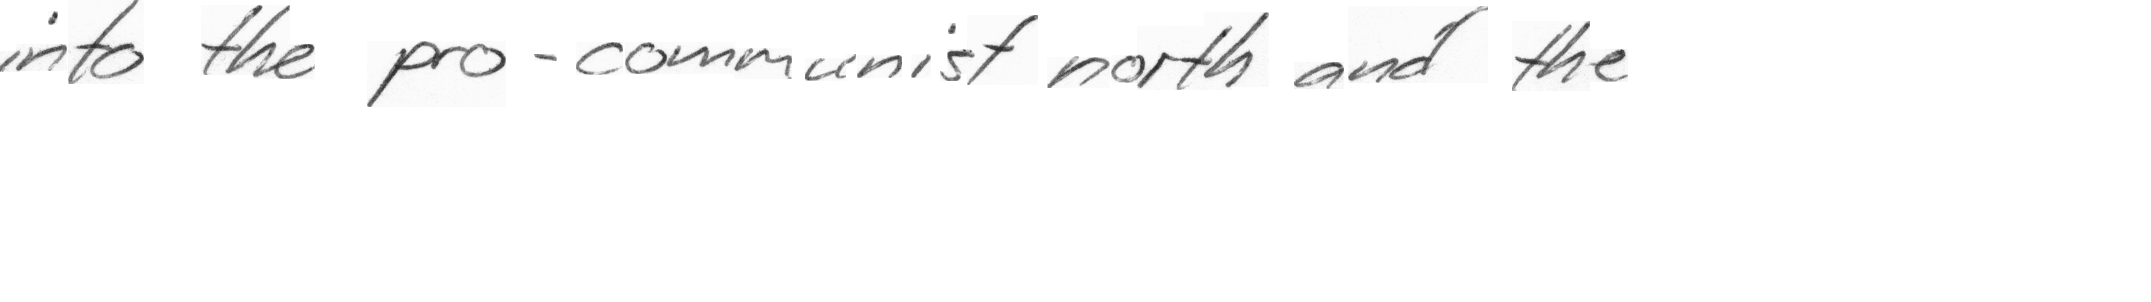 into the pro-communist north and the